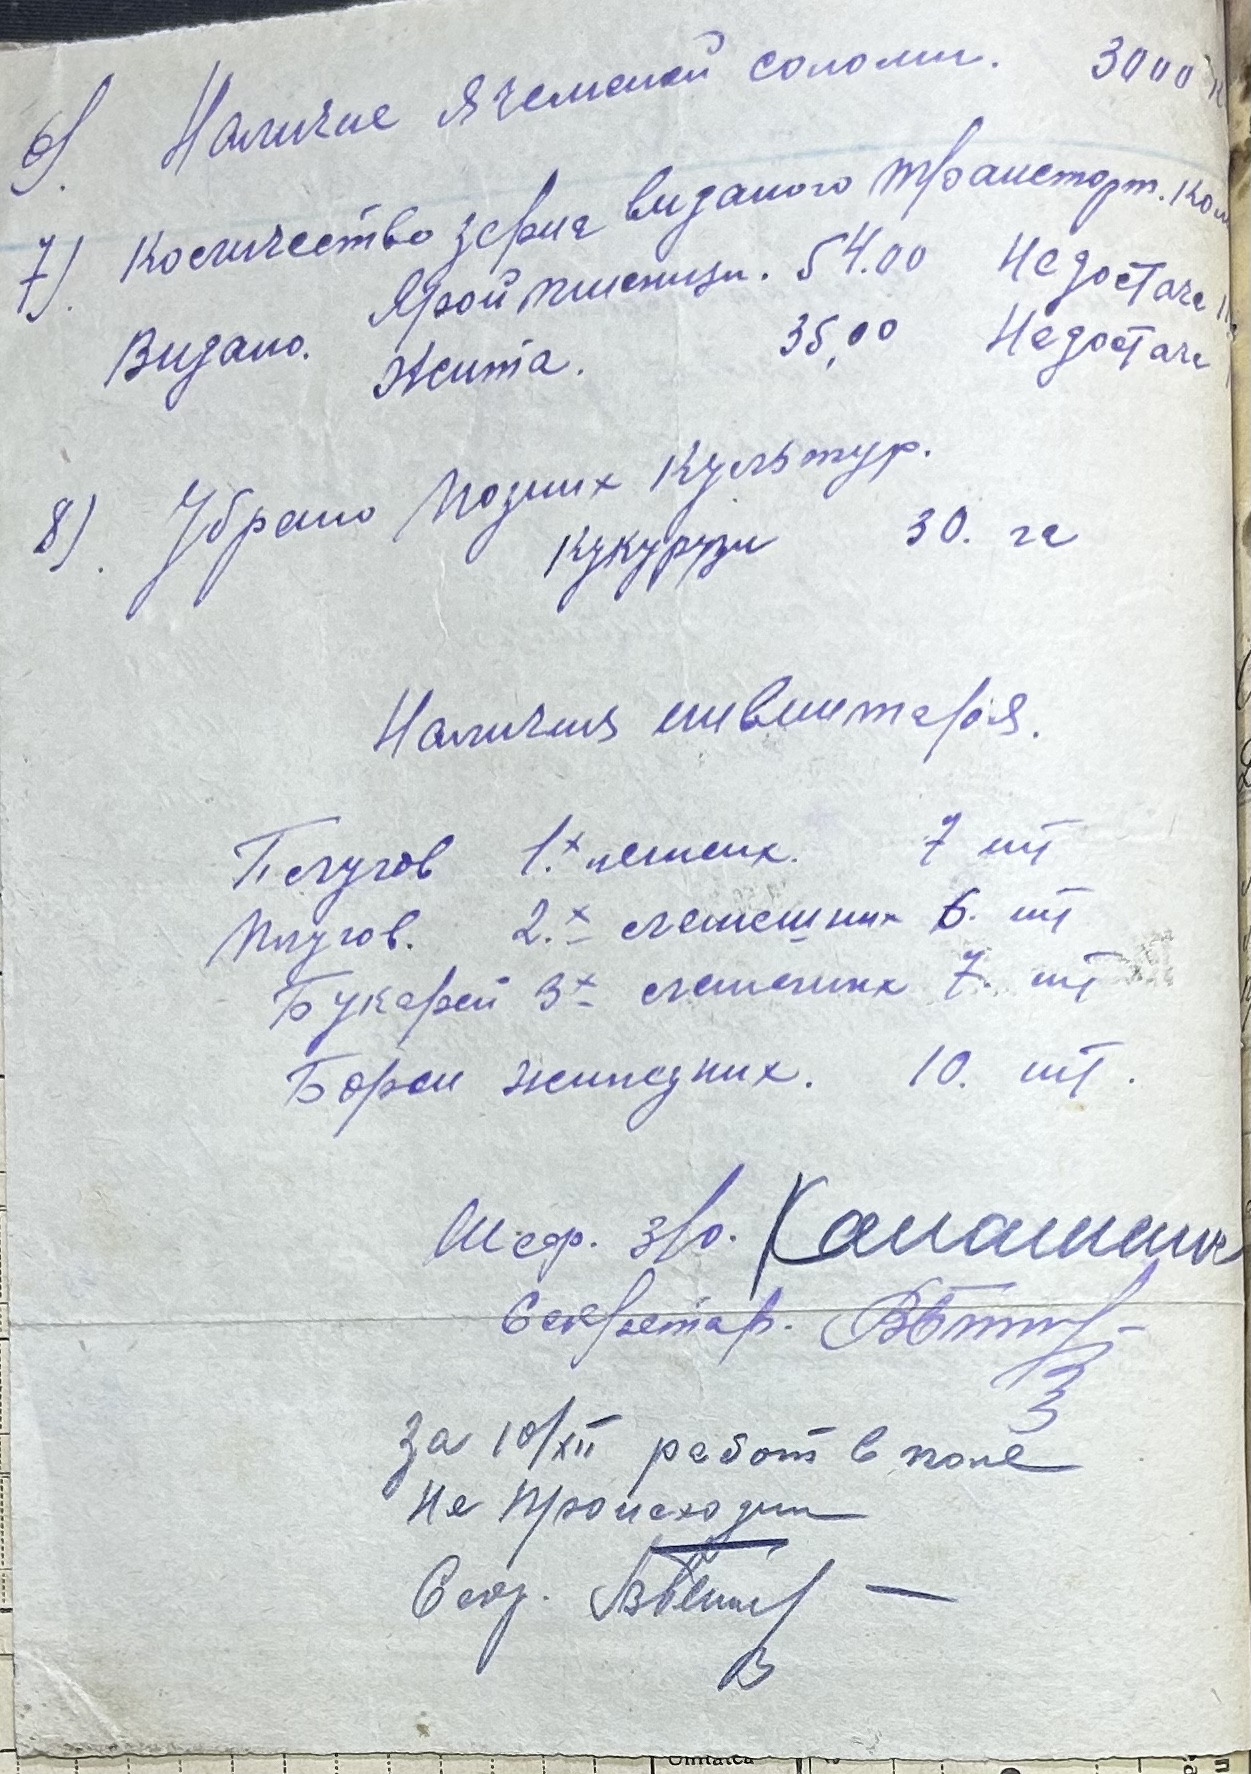 6). Наличие Ячемной соломи. 3000
7). Количество зерна виданого транспорт. Ком
Видано. Ярой пшеници. 54.00 Недостача
Жита. 35,00 Недостача
8). Убрано Позних Культур.
кукурузи 30. га
Наличия инвинтаря.
Плугов 1.х лемеш. 7 шт
Плугов. 2.х лемешних 6. шт
Букарей 3х лемешних 7. шт
Борон жилезних. 10. шт.
Секретар.
За 10/XII работ в поле
Не Происходи
Секр.